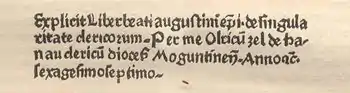 Explicit Liber beati augustini ep̄i. de singula
ritate clericorum. Per me Olricū zel de ha
nau clericū dioceẜ Moguntineñ. Anno ꝛc̄.
sexagesimoseptimo.